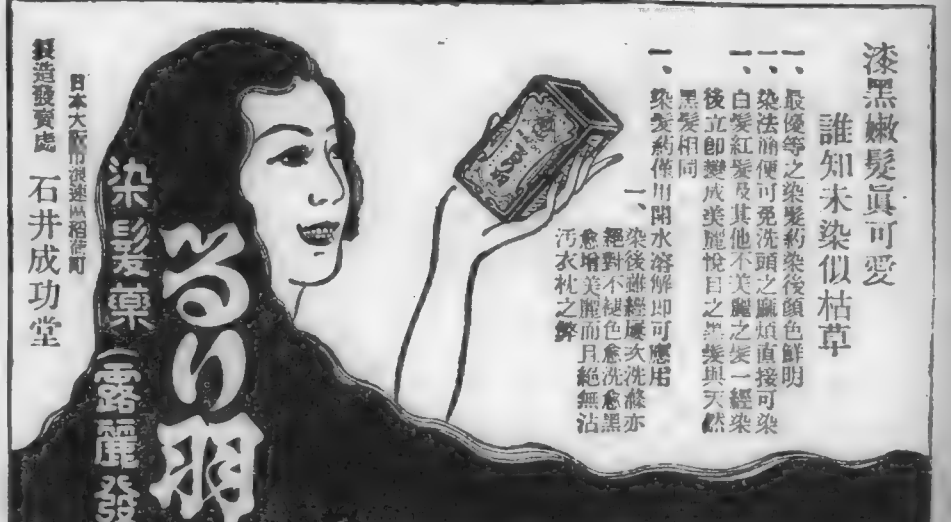 漆黑嫩髮眞可愛
誰知未染似枯草
一、最優等之染髮約染後顔色鮮明
一、染法簡便可免洗頭之麻煩直接可染
一、白髮紅髮及其他不美麗之髮一經染
後立卽變成美麗悅目之黑髮與天然
黑髮相同
一、染髮約僅用開水溶解卽可應用
一、染後雖經屢次洗滌亦
絕對不褪色愈洗愈黑
愈增美麗而且絕無沾
汚衣枕之弊
るり羽
染髮藥(露麗發
日本大阪市浪速區稻荷町
製造發賣處 石井成功堂